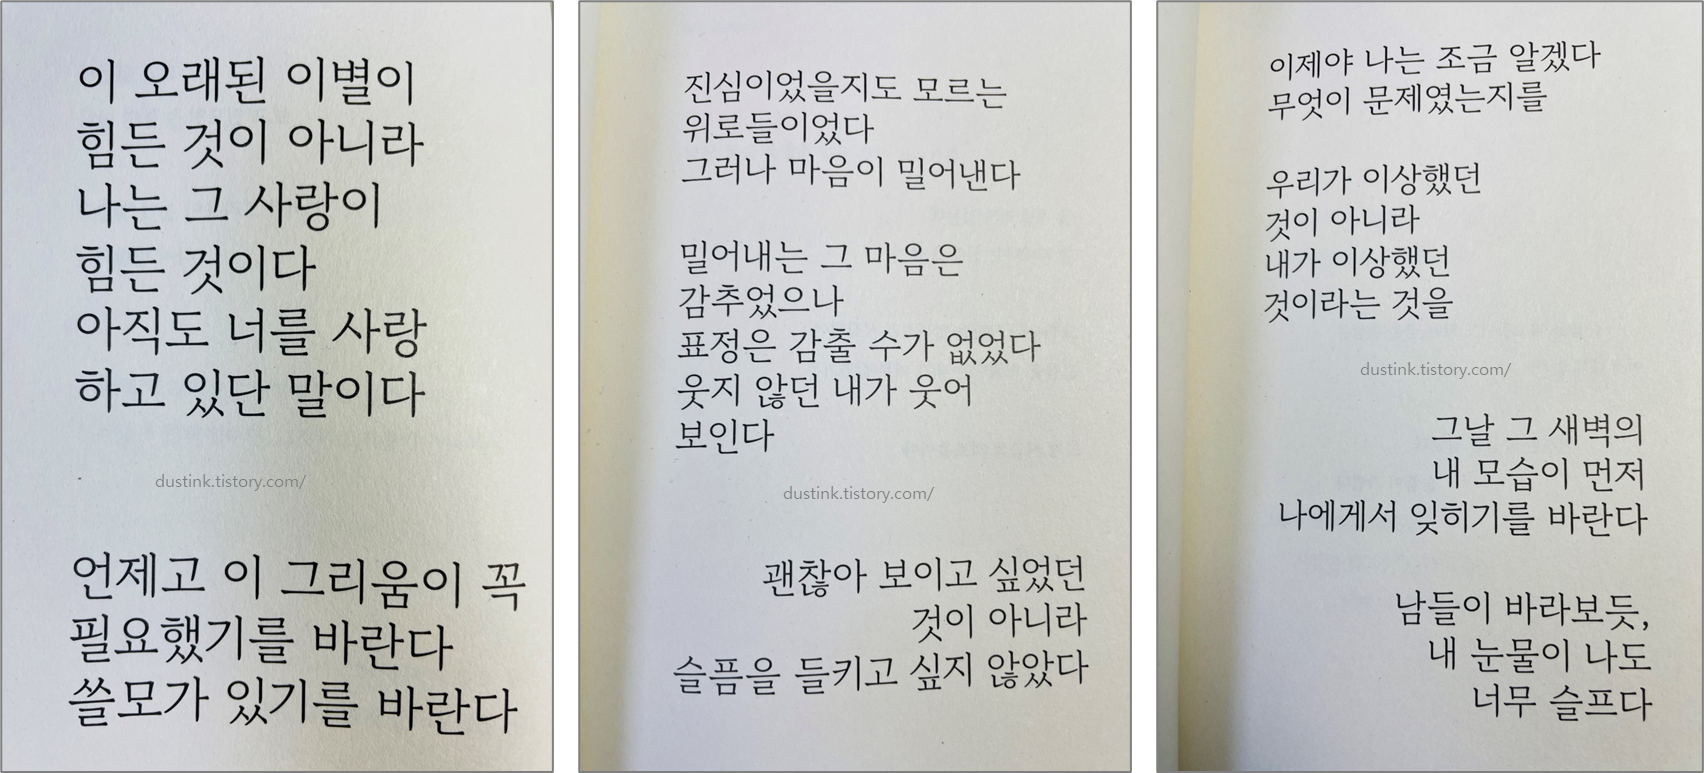 이 오래된 이별이
힘든 것이 아니라
나는 그 사랑이
힘든 것이다
아직도 너를 사랑
하고 있단 말이다
dustink.tistory.com/
언제고 이 그리움이 꼭
필요했기를 바란다
쓸모가 있기를 바란다
진심이었을지도 모르는
위로들이었다
그러나 마음이 밀어낸다
밀어내는 그 마음은
감추었으나
표정은 감출 수가 없었다
웃지 않던 내가 웃어
보인다
dustink.tistory.com/
괜찮아 보이고 싶었던
것이 아니라
슬픔을 들키고 싶지 않았다
이제야 나는 조금 알겠다
무엇이 문제였는지를
우리가 이상했던
것이 아니라
내가 이상했던
것이라는 것을
dustink.tistory.com/
그날 그 새벽의
내 모습이 먼저
나에게서 잊히기를 바란다
남들이 바라보듯,
내 눈물이 나도
너무 슬프다